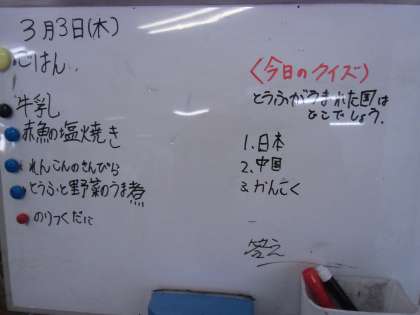 3月3日(木)
ごはん
牛乳
赤魚の塩焼き
れんこんのきんぴら
とうふと野菜のうま煮
のりつくだに
〈今日のクイズ〉
とうふがうまれた国は
どこでしょう。
1.日本
2.中国
3.かんこく
答え